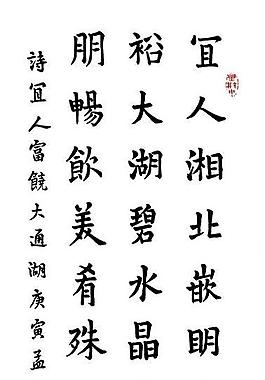 冝人湘北嵌明
裕大湖碧水晶
朋暢飲美肴殊
詩冝人富饒大通湖庚寅孟